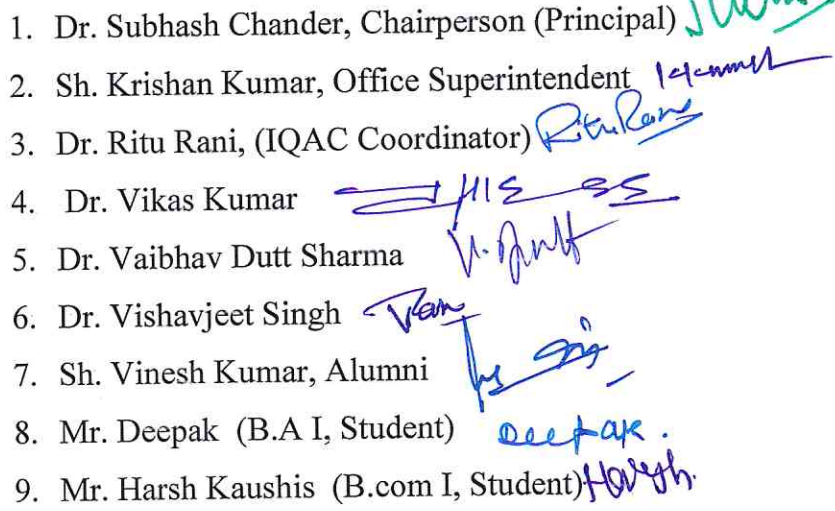 1. Dr. Subhash Chander, Chairperson (Principal)
2. Sh. Krishan Kumar, Office Superintendent
3. Dr. Ritu Rani, (IQAC Coordinator) Ritu Rani
4. Dr. Vikas Kumar
5. Dr. Vaibhav Dutt Sharma
6. Dr. Vishavjeet Singh
7. Sh. Vinesh Kumar, Alumni
8. Mr. Deepak (B.A I, Student) Deepak.
9. Mr. Harsh Kaushis (B.com I, Student) Harsh.